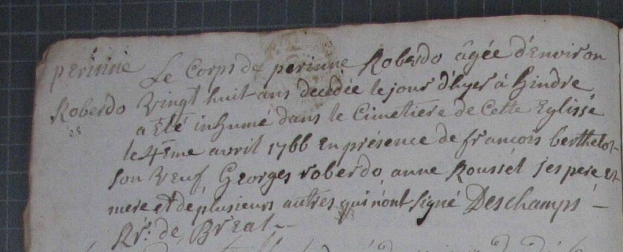 perinne Le Corps de perinne Roberdo âgée d'Environ
Roberdo Vingt huit ans decedée le jour d'hyer à hindré
28 a Eté inhumé dans le Cimetiere de Cette Eglisse
le 4eme avril 1766 En présence de françois berthelot
son Veuf, Georges roberdo, anne Roussel ses pere et
mere et de plusieurs autres qui n'ont signé Deschamps
Rr. de Breal